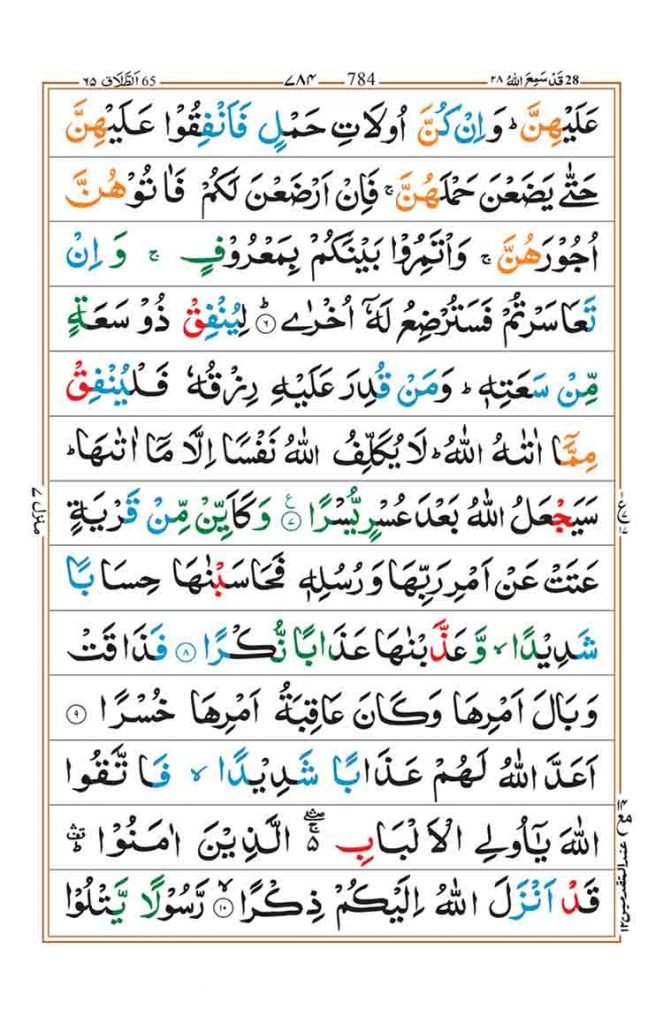 28 قَدْ سَمِعَ اللّٰهُ ٢٨ 784 ٧٨٤ 65 اَلطَّلَاق ٦٥
عَلَيْهِنَّ ؕ وَاِنْ كُنَّ اُولَاتِ حَمْلٍ فَاَنْفِقُوْا عَلَيْهِنَّ
حَتّٰى يَضَعْنَ حَمْلَهُنَّ ۚ فَاِنْ اَرْضَعْنَ لَكُمْ فَاٰتُوْهُنَّ
اُجُوْرَهُنَّ ۚ وَاْتَمِرُوْا بَيْنَكُمْ بِمَعْرُوْفٍ ۚ وَاِنْ
تَعَاسَرْتُمْ فَسَتُرْضِعُ لَهٗۤ اُخْرٰى ؕ ۝٦ لِيُنْفِقْ ذُوْ سَعَةٍ
مِّنْ سَعَتِهٖ ؕ وَمَنْ قُدِرَ عَلَيْهِ رِزْقُهٗ فَلْيُنْفِقْ
مِمَّاۤ اٰتٰىهُ اللّٰهُ ؕ لَا يُكَلِّفُ اللّٰهُ نَفْسًا اِلَّا مَاۤ اٰتٰىهَا ؕ
سَيَجْعَلُ اللّٰهُ بَعْدَ عُسْرٍ يُّسْرًا ۝٧ ع وَكَاَيِّنْ مِّنْ قَرْيَةٍ
عَتَتْ عَنْ اَمْرِ رَبِّهَا وَرُسُلِهٖ فَحَاسَبْنٰهَا حِسَابًا
شَدِيْدًا ۙ وَّعَذَّبْنٰهَا عَذَابًا نُّكْرًا ۝٨ فَذَاقَتْ
وَبَالَ اَمْرِهَا وَكَانَ عَاقِبَةُ اَمْرِهَا خُسْرًا ۝٩
اَعَدَّ اللّٰهُ لَهُمْ عَذَابًا شَدِيْدًا ۙ فَاتَّقُوا
اللّٰهَ يٰۤاُولِى الْاَلْبَابِ ۛۚ ۵ الَّذِيْنَ اٰمَنُوْا ۛؕ
قَدْ اَنْزَلَ اللّٰهُ اِلَيْكُمْ ذِكْرًا ۙ ۝١٠ رَّسُوْلًا يَّتْلُوْا
منزل ٧